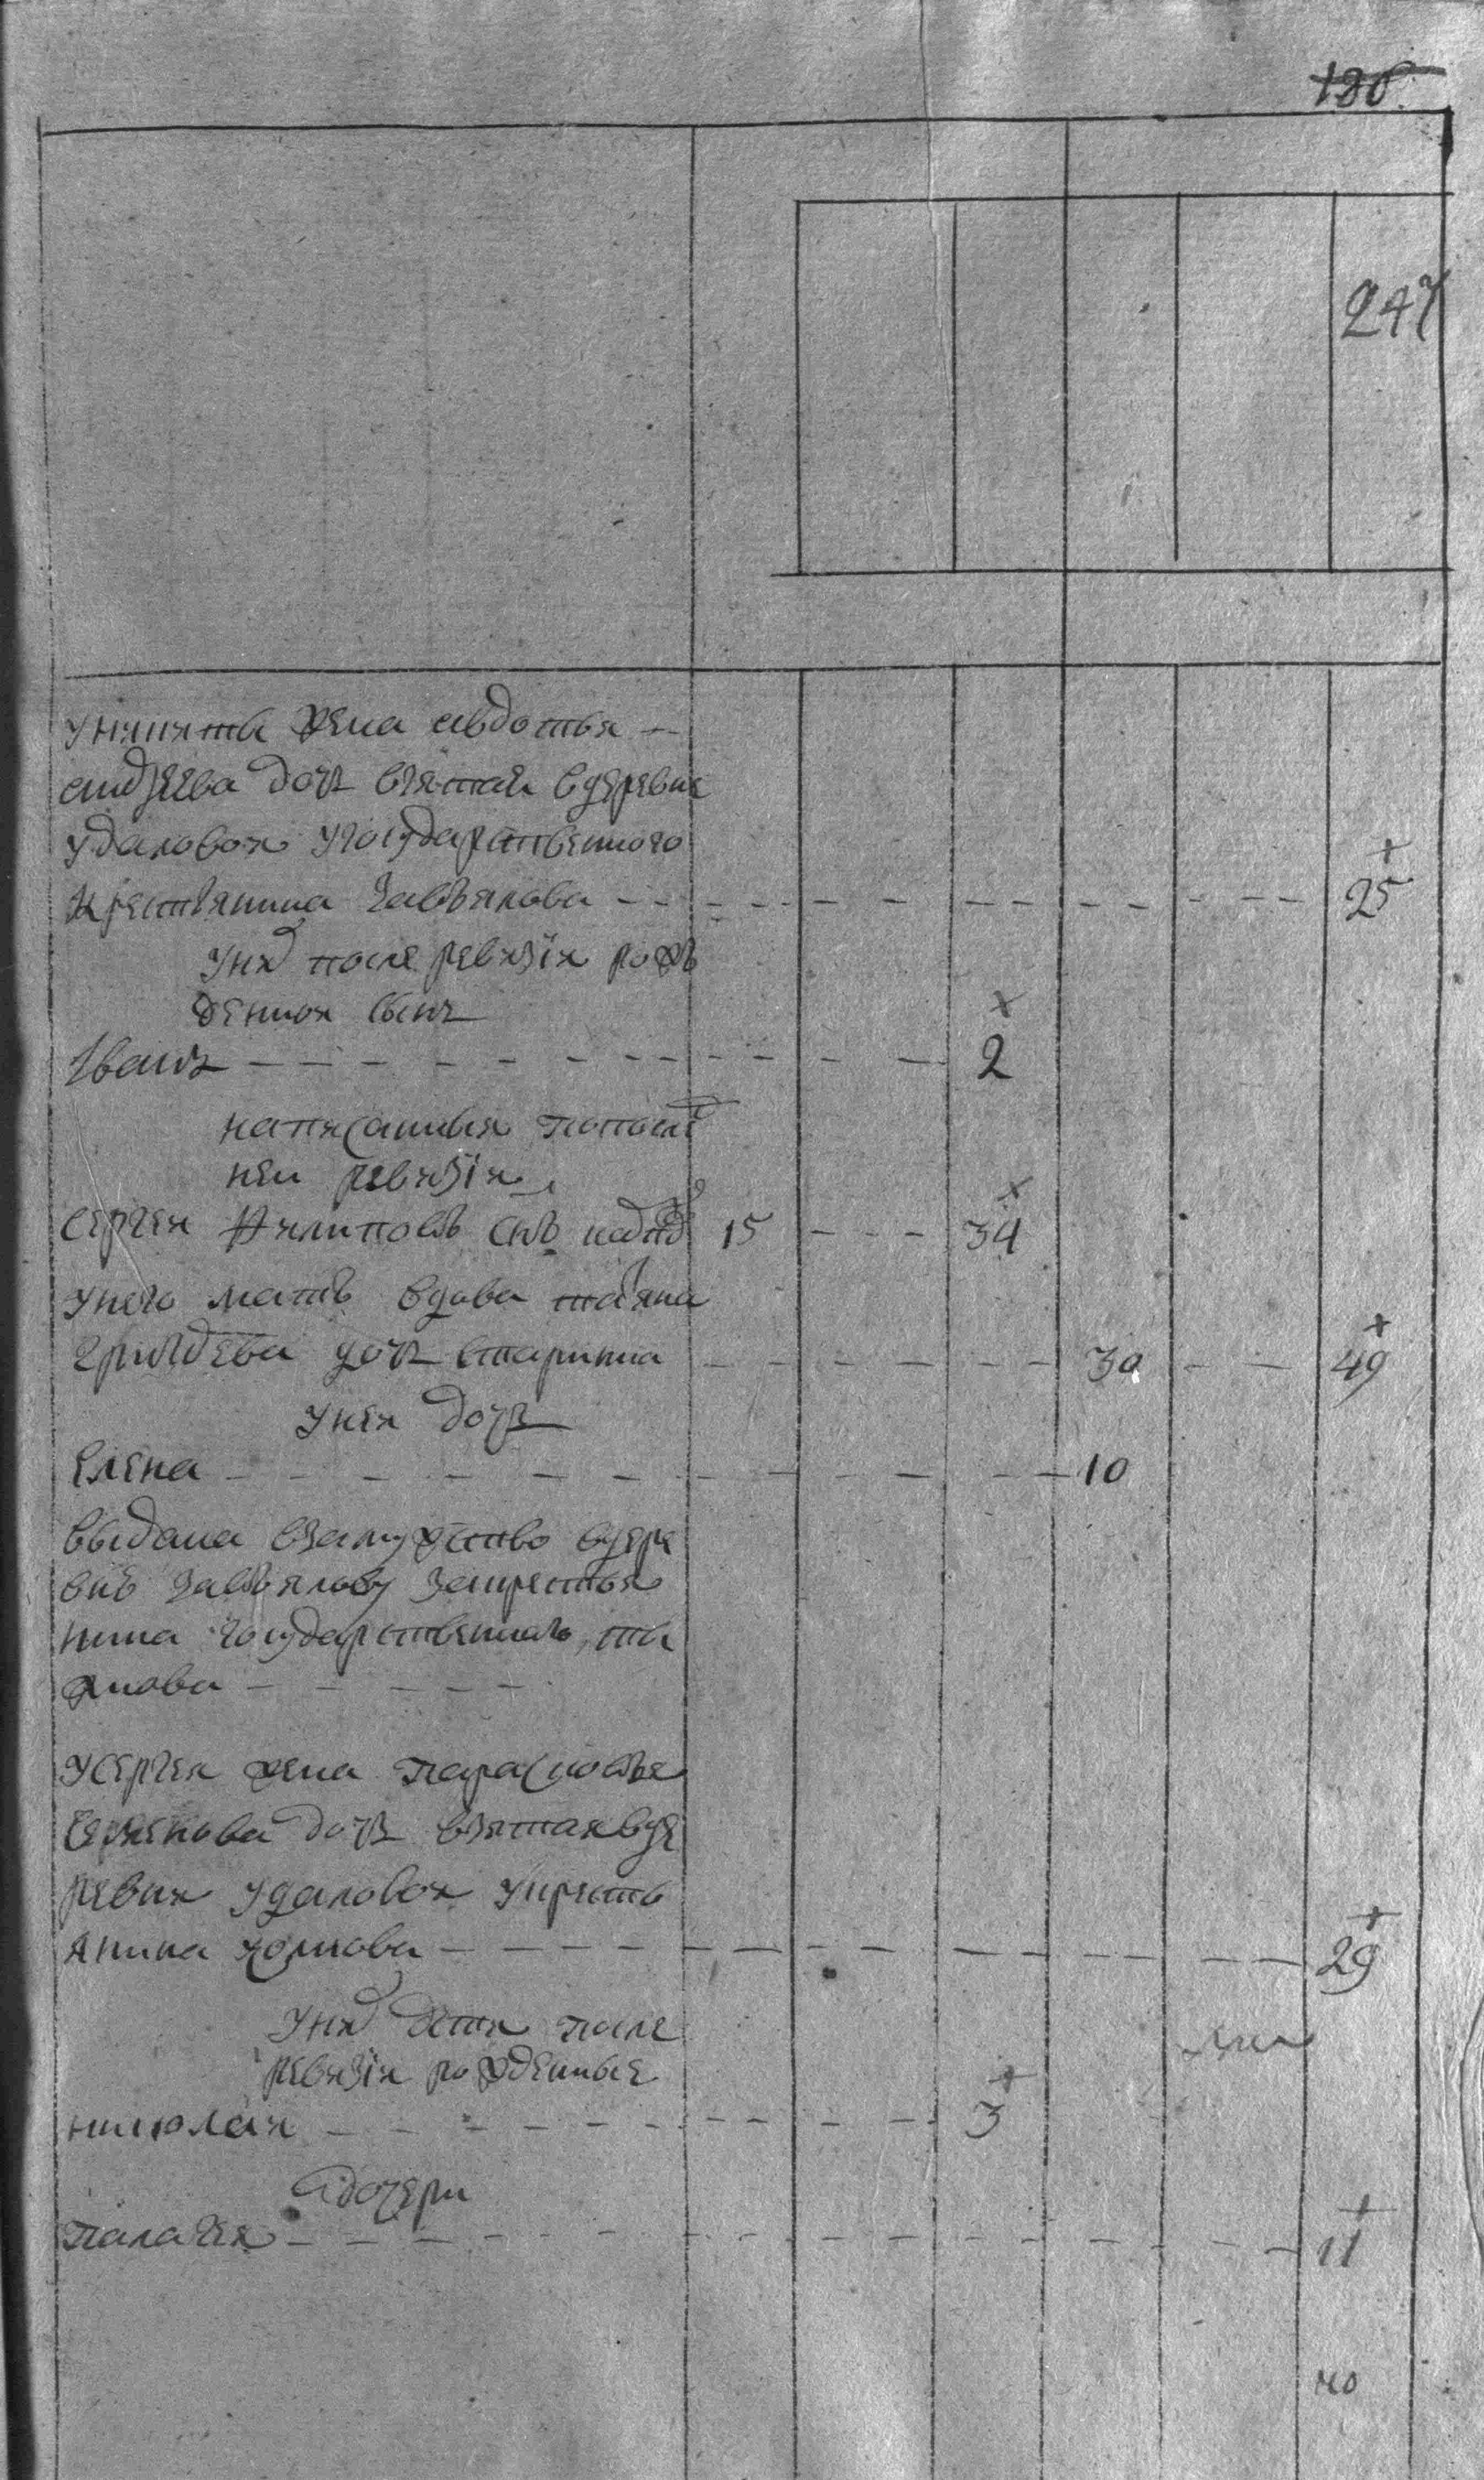 180
247
У никиты жена авдотья —
андреева дочь взятая вдеревне
удаловой угосударственного
крестьянина Завьялова 25
У них после ревизiи рожъ
денной сынъ
Иванъ 2
написанныя попослѣд
ней ревизiи
Сергей Филиповъ снъ 15 34
Унего мать вдова татьяна
дочь старинная 30 49
Уней дочь
Елена 10
выдана взамужство вдере
внѣ Завьялову закрестья
нина государственнаго
У Сергея жена парасковья
Семенова дочь взятая вде
ревни удаловой укресть
янина 29
Уних дети после
ревизiи рожденные
николай 3
дочери
палагея 11
40